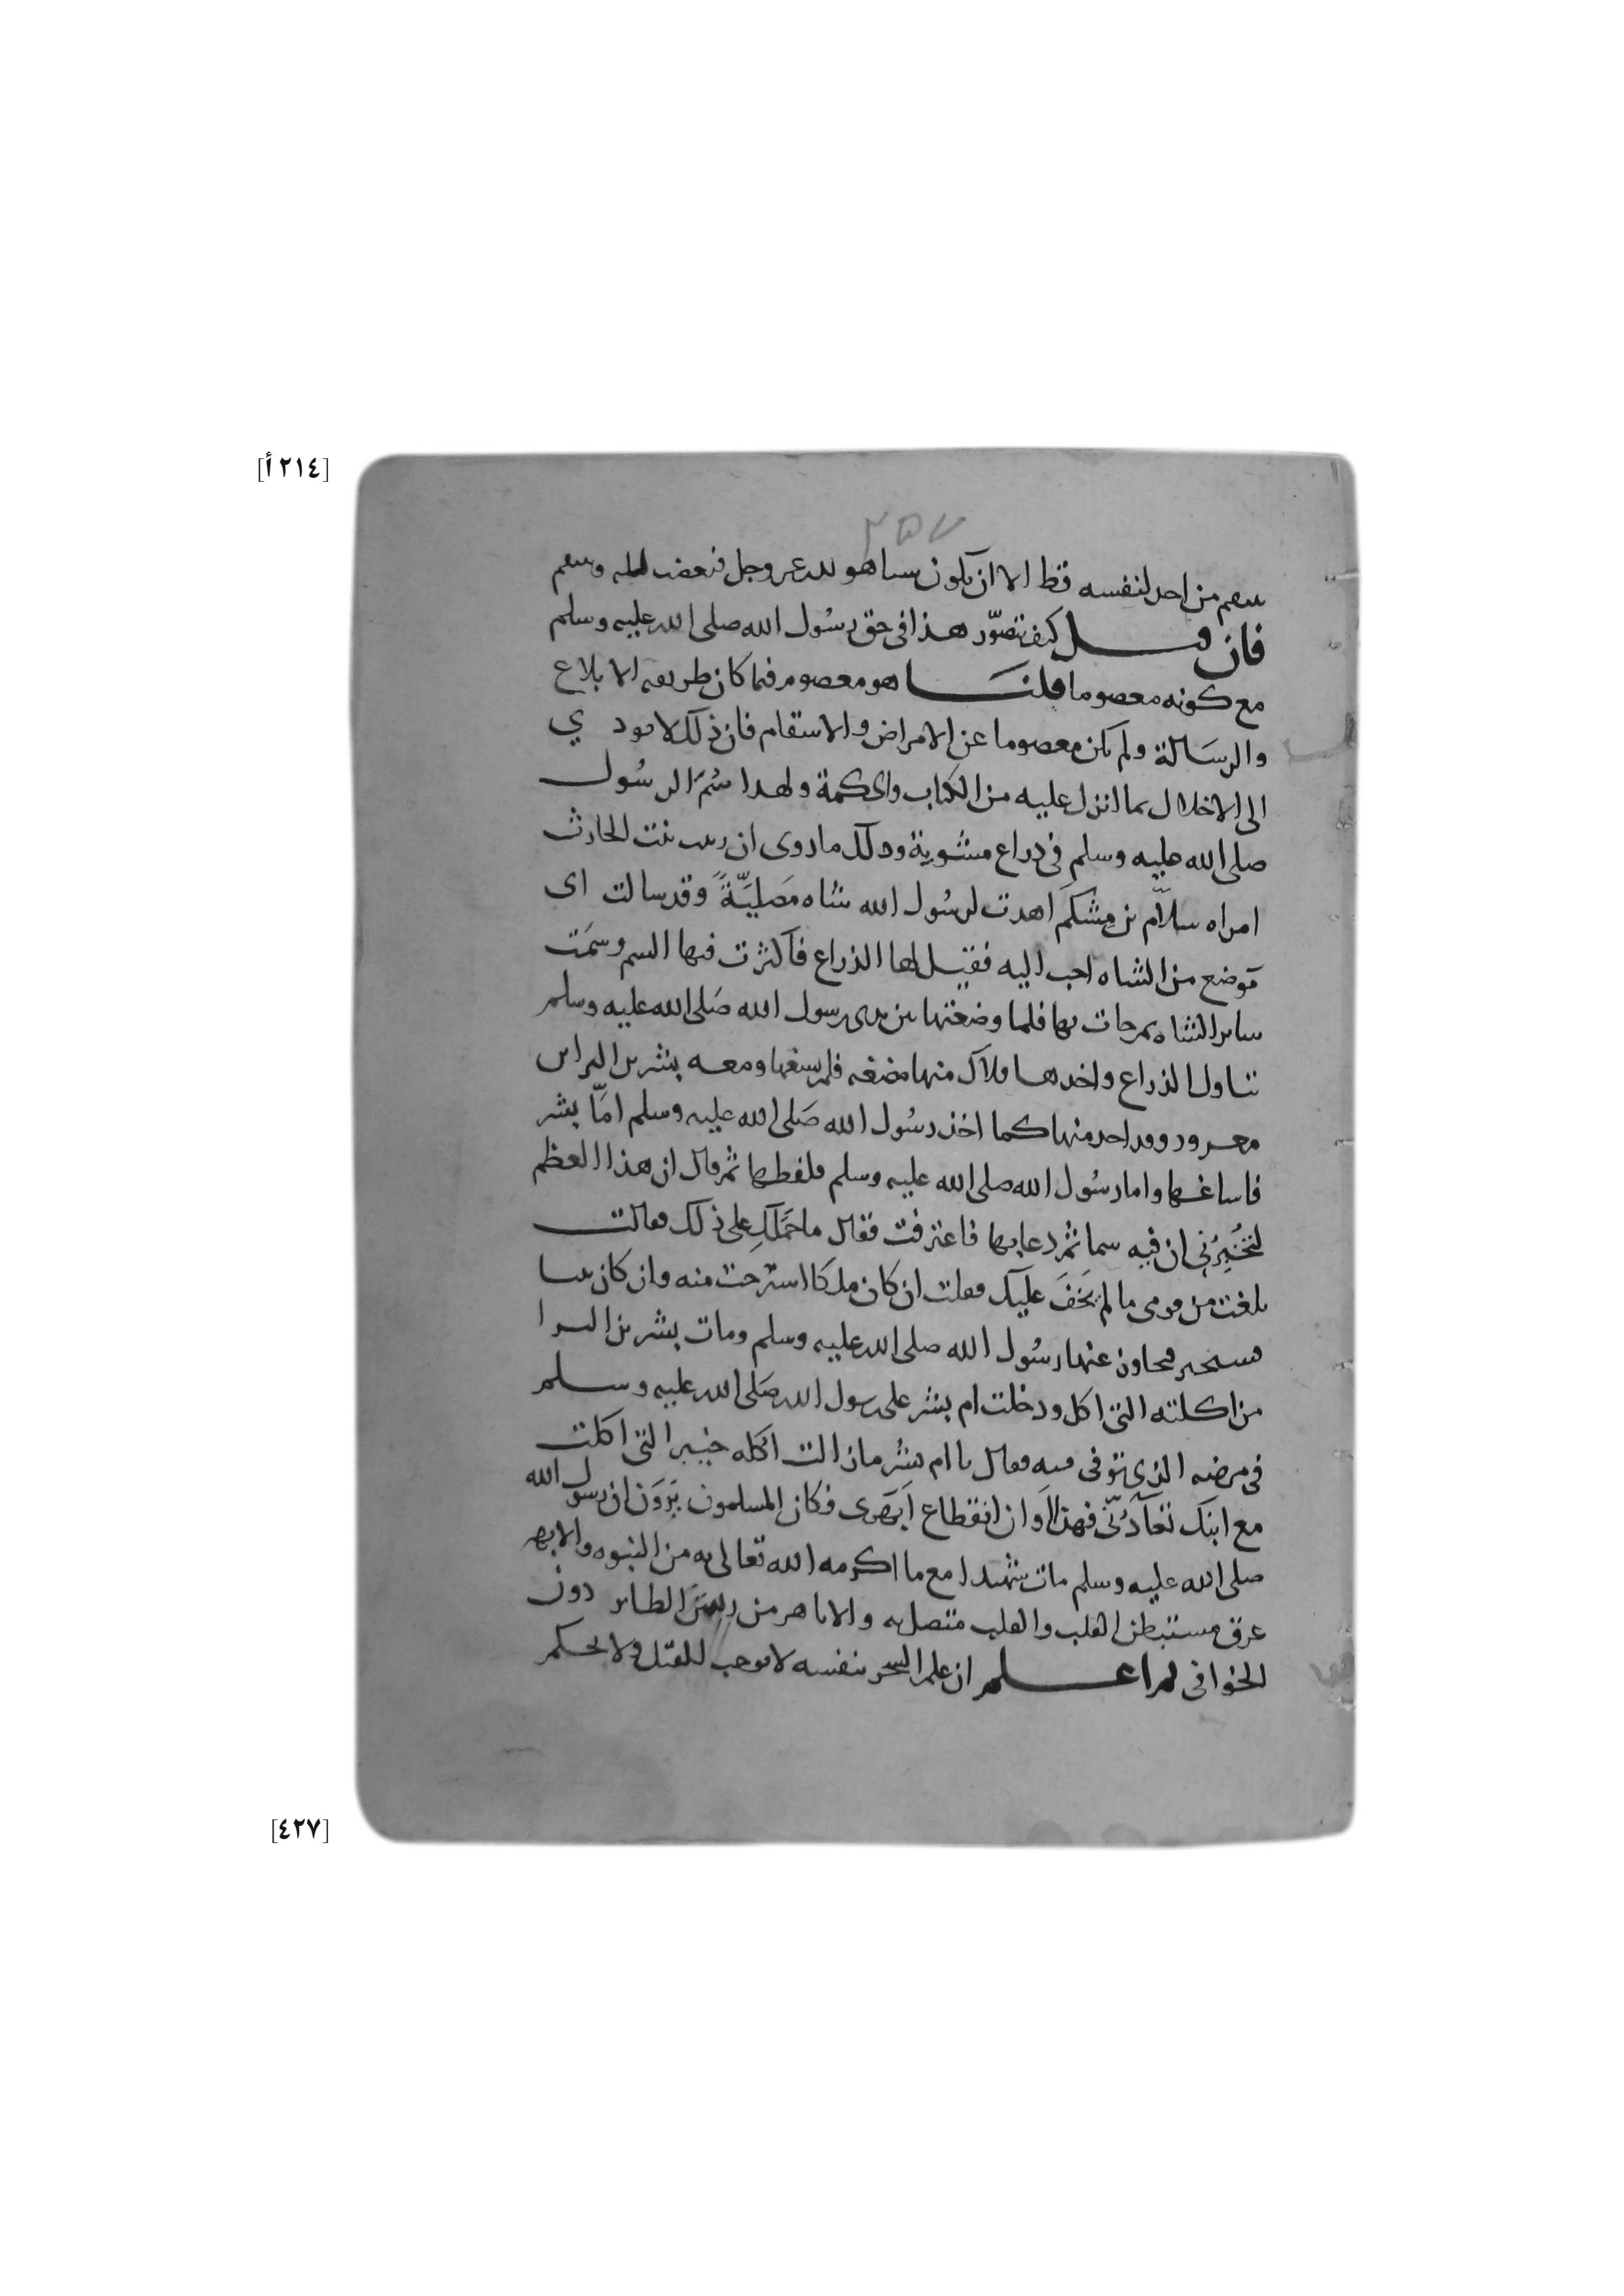 [٢١٤ أ]
٢٥٧
ينتقم من احد لنفسه قط الا ان يكون شيا هو لله عز وجل فيغضب لله وينتقم
فان قيل كيف تتصوّر هذا في حق رسُول الله صلى الله عليه وسلم
مع كونه معصوما قلنا هو معصوم فيما كان طريقه الابلاغ
والرسَالة ولم يكن معصوما عن الامراض والاسقام فان ذلك لا يودي
الى الاخلال بما انزل عليه من الكتاب والحكمة ولهذا سُمّ الرسُول
صلى الله عليه وسلم في ذراع مشوية وذلك ما روى ان زينب بنت الحارث
امراه سلاّم بن مِشكَم اهدت لرسُول الله شاه مَصليَّةً وقد سالت اى
موضع من الشاه احب اليه فقيل لها الذراع فاكثرت فيها السم وسمَت
ساير الشاه ثم جات بها فلما وضعتها بين يدى رسول الله صَلى الله عليه وسلم
تناول الذراع واخدها فلاك منها مضغه فلم يسغها ومعه بشر بن البراس
معرور وقد اخد منها كما اخذ رسُول الله صَلى الله عليه وسلم امّا بشر
فاساغها واما رسُول الله صلى الله عليه وسلم فلفظها ثم قال ان هذا العظم
لتخُبِرُني ان فيه سما ثم دعا بها فاعترفت فقال ما حَملَكِ على ذلك فقالت
بلغت من قومى ما لم يَخفَ عليك فقلت ان كان ملكا استرحت منه وان كان نبيا
فسيخبر فتجاوز عنها رسُول الله صلى الله عليه وسلم ومات بشر بن البرا
من اكلته التي اكل ودخلت ام بشر على رسول الله صَلى الله عليه وسلم
في مرضه الذي توفى فيه فقال يا ام بشر ما زالت اكله خيبر التي اكلت
مع ابنك تعآدُنّي فهذا اَوان انقطاع اَبهَرى فكان المسلمون يَرَوَن ان رسول الله
صلى الله عليه وسلم مات شهيدا مع ما اكرمه الله تعالى به من النبوه والابهر
عرق مستبطن القلب والقلب متصل به والاباهر من ريش الطاير دون
الخوافي ثم اعلم ان علم السحر بنفسه لا يوجب للقتل ولا لحكم
[٤٢٧]